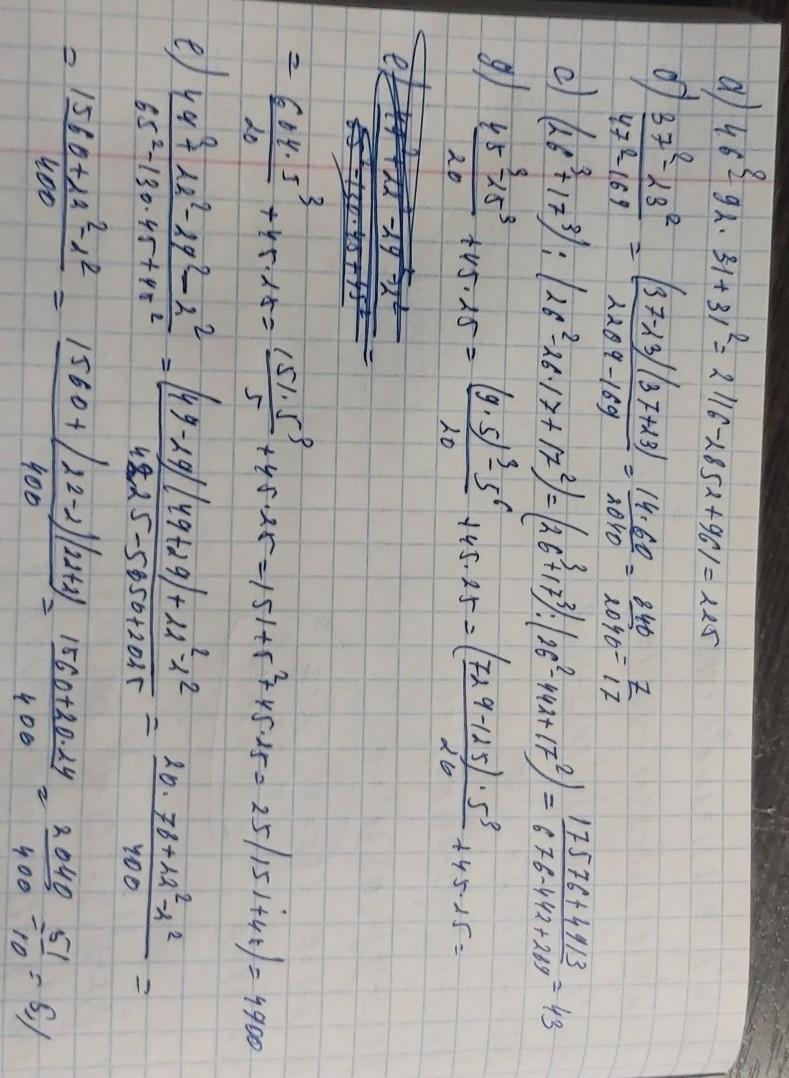 a) 46² - 92·31 + 31² = 2116 - 2852 + 961 = 225
б) (37² - 23²)/(47² - 169) = (37-23)(37+23)/(2209 - 169) = 14·60/2040 = 840/2040 = 7/17
c) (26³ + 17³) : (26² - 26·17 + 17²) = (26³ + 17³) : (26² - 442 + 17²) = (17576 + 4913)/(676 - 442 + 289) = 43
g) (45³ - 25³)/20 + 45·25 = ((9·5)³ - 5⁶)/20 + 45·25 = (729 - 125)·5³/20 + 45·25 =
= 604·5³/20 + 45·25 = 151·5³/5 + 45·25 = 151+5² + 45·25 = 25(151 + 45) = 4900
e) (49² + 22² - 29² - 2²)/(65² - 130·45 + 45²) = ((49-29)(49+29) + 22² - 2²)/(4225 - 5850 + 2025) = (20·78 + 22² - 2²)/400 =
= (1560 + 22² - 2²)/400 = (1560 + (22-2)(22+2))/400 = (1560 + 20·24)/400 = 2040/400 = 51/10 = 5,1